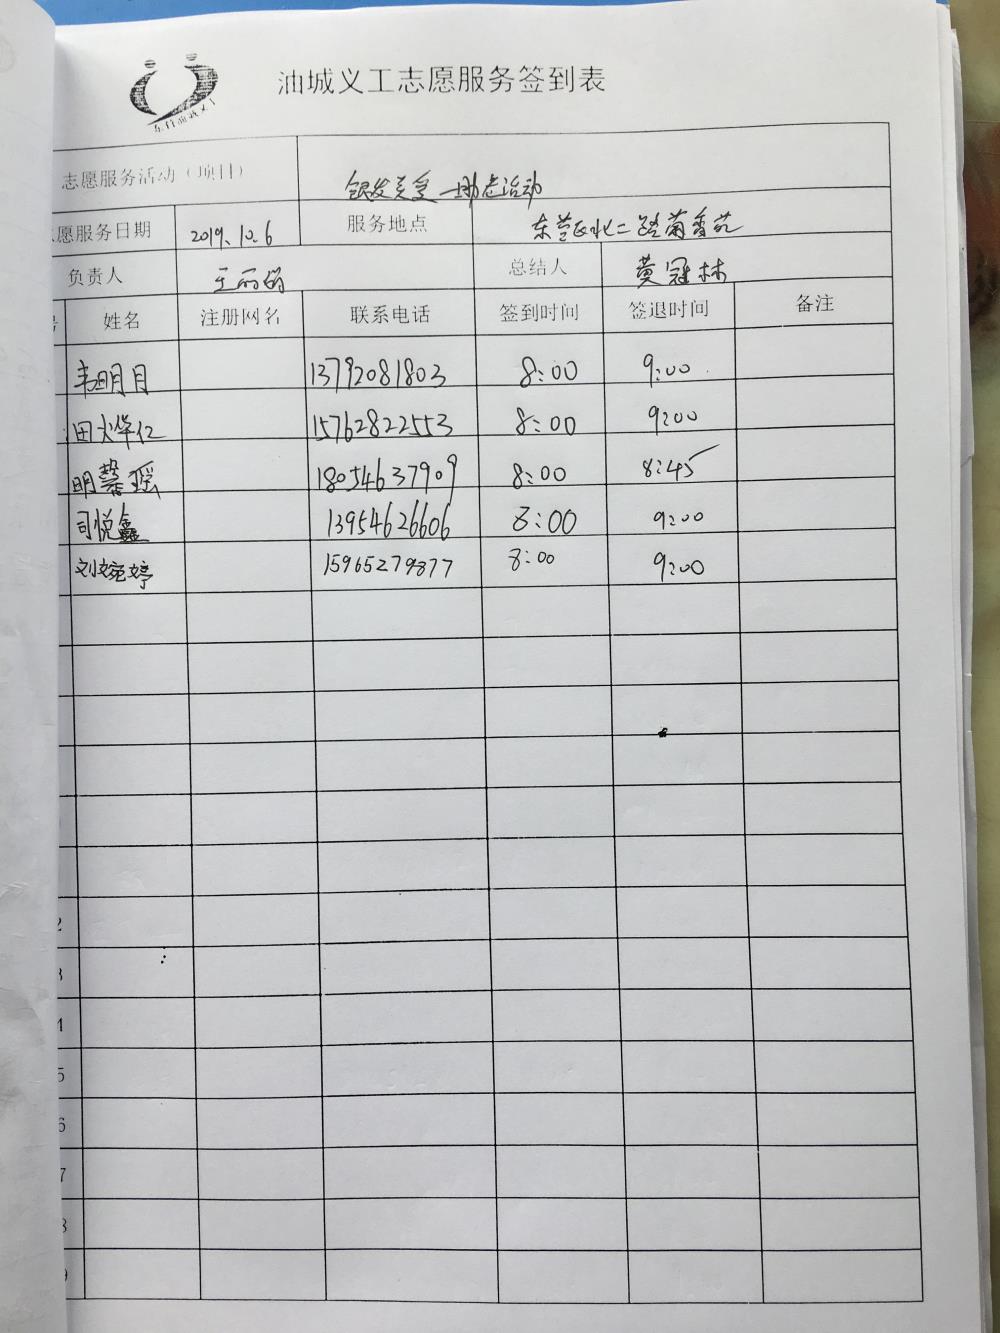 油城义工志愿服务签到表
志愿服务活动（项目） 银发关爱—助老活动
愿服务日期 2019.10.6 服务地点 东营区北二路菊香苑
负责人 王丽娟 总结人 黄冠林
姓名 注册网名 联系电话 签到时间 签退时间 备注
韦明月 13792081803 8:00 9:00
田烨仁 15762822553 8:00 9:00
明馨瑶 18054637909 8:00 8:45
司悦鑫 13954626606 8:00 9:00
刘婉婷 15965279877 8:00 9:00
2
3
4
5
6
7
8
9